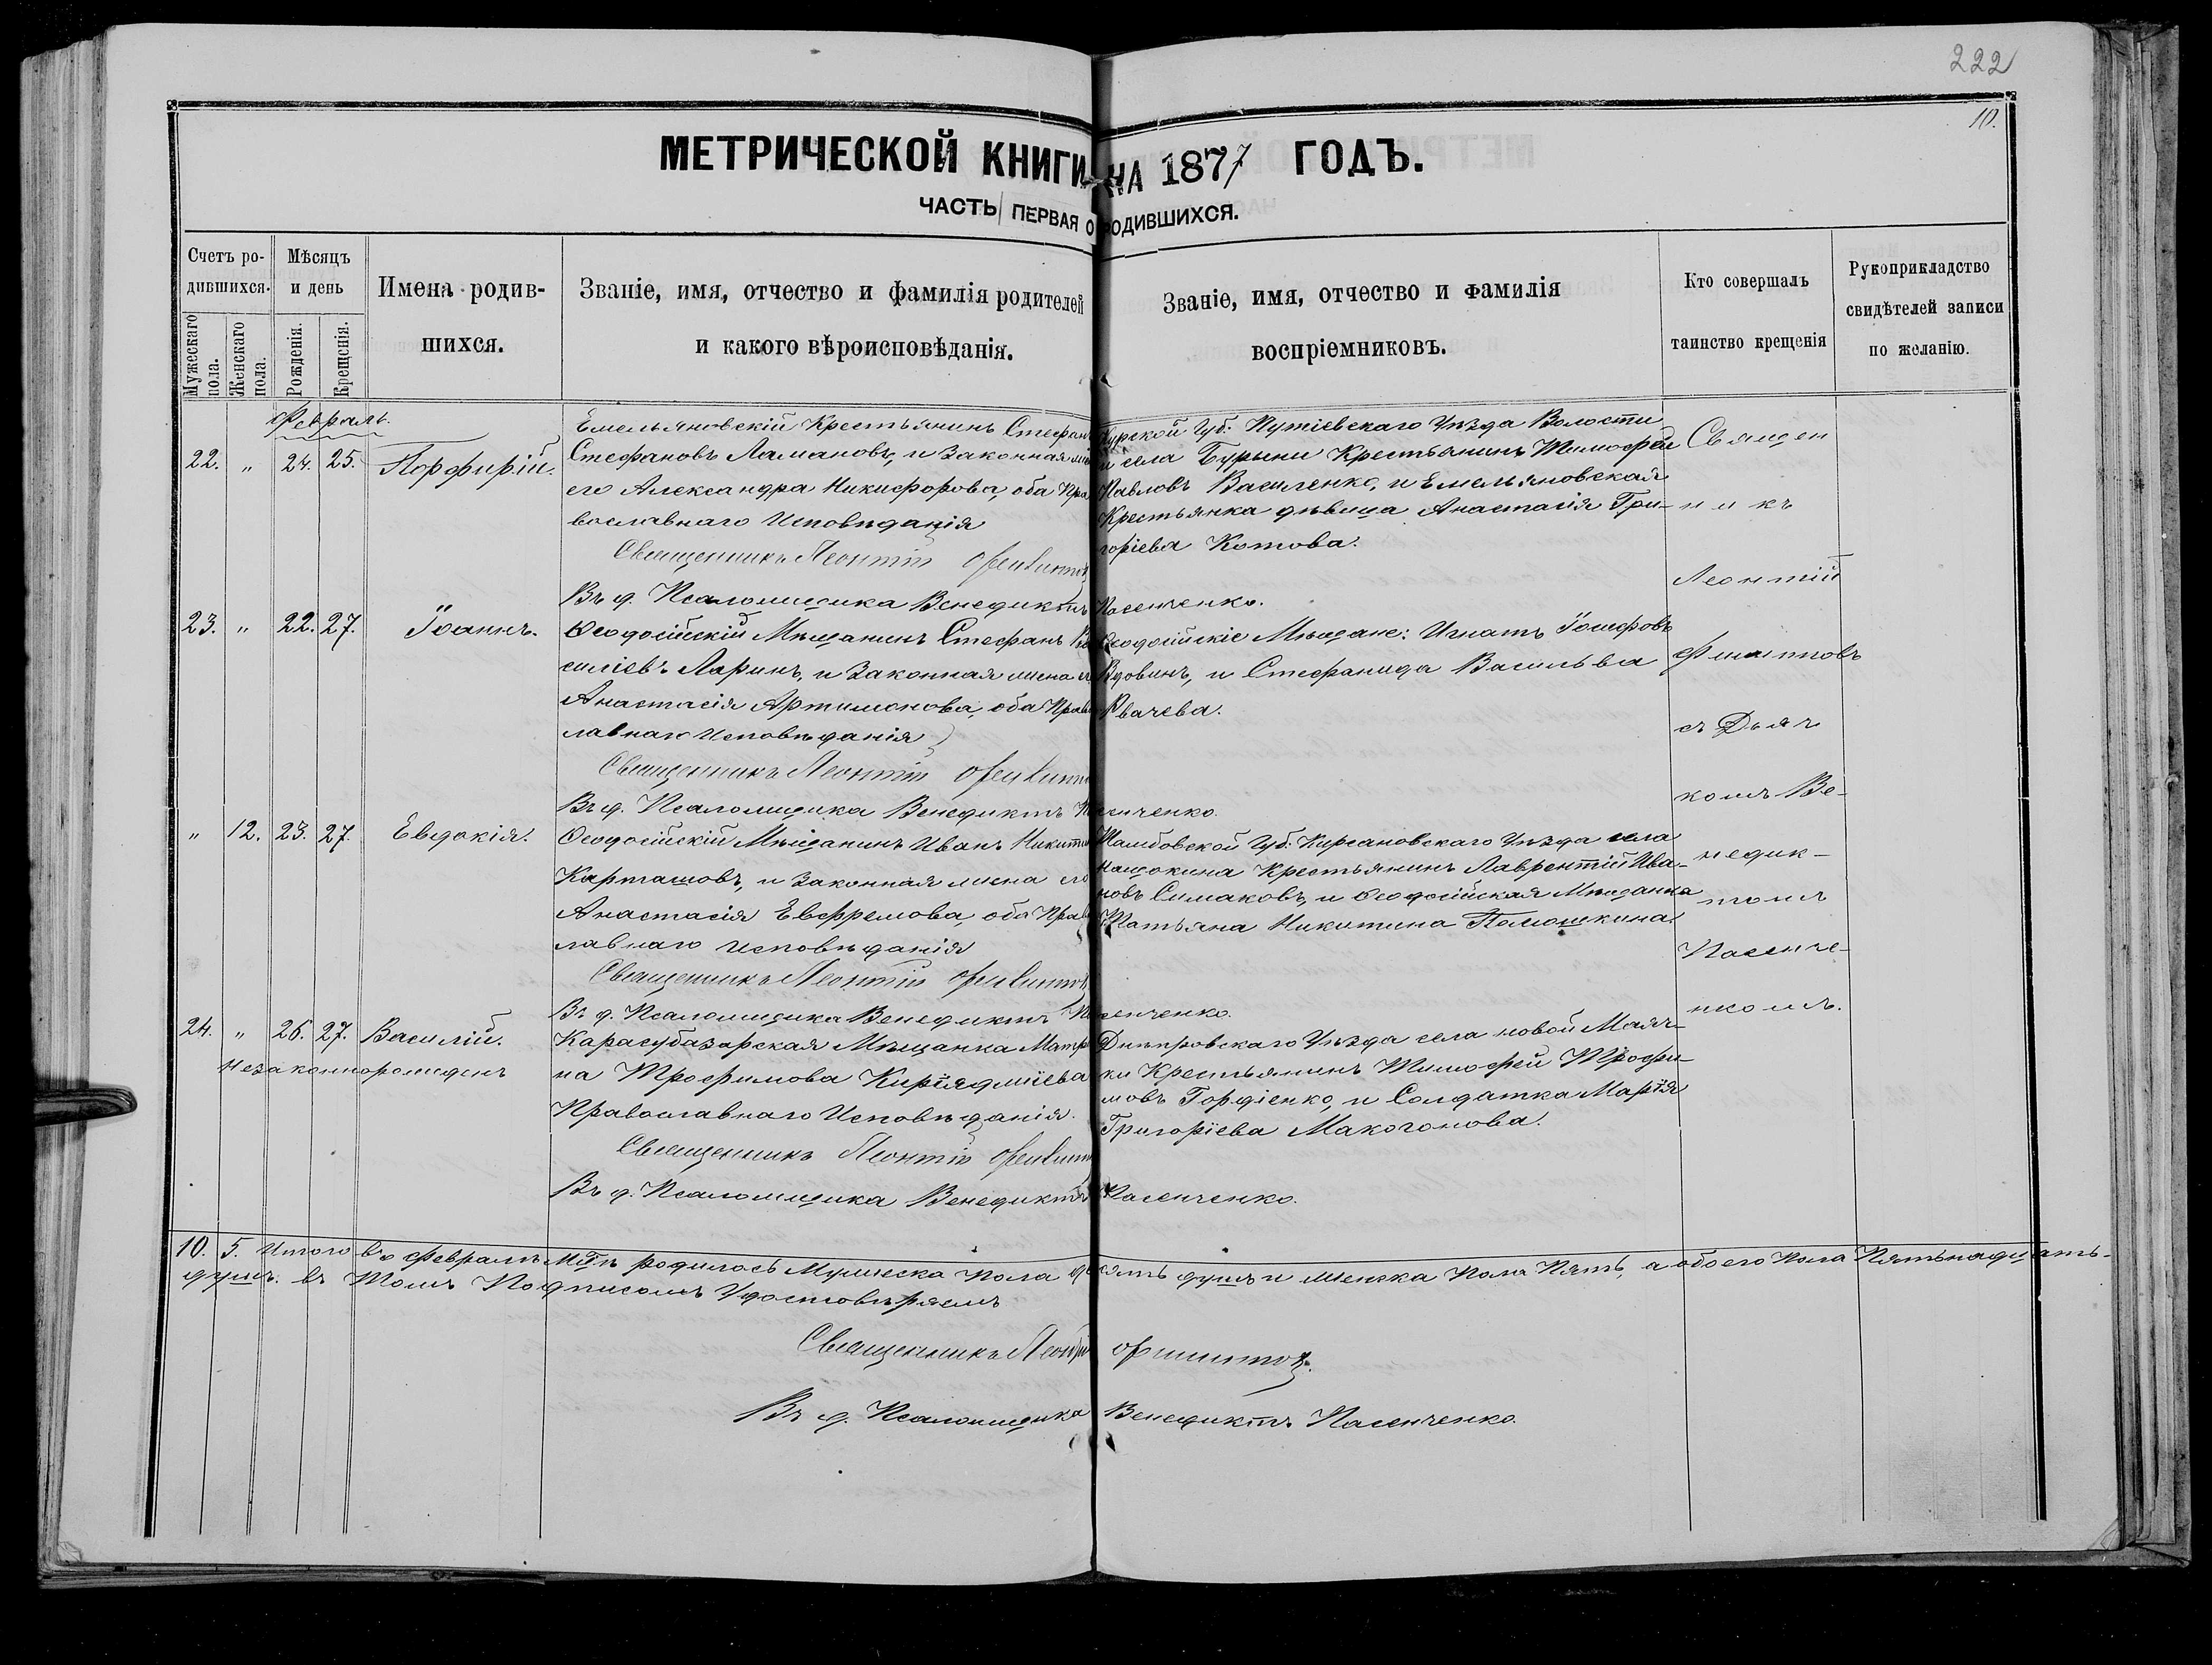 222
10.
МЕТРИЧЕСКОЙ КНИГИ НА 1877 ГОДЪ.
ЧАСТЬ ПЕРВАЯ О РОДИВШИХСЯ.
Счетъ родившихся.
Мужескаго пола.
Женскаго пола.
Мѣсяцъ и день
Рожденія.
Крещенія.
Имена родившихся.
Званіе, имя, отчество и фамилія родителей
и какого вѣроисповѣданія.
Званіе, имя, отчество и фамилія
воспріемниковъ.
Кто совершалъ
таинство крещенія
Рукоприкладство
свидѣтелей записи
по желанію.
Февраль.
22. " 24. 25. Порфирій.
Емельяновскій Крестьянинъ Стефанъ
Стефановъ Ламановъ, и Законная жена
его Александра Никифорова, оба Пра
вославнаго Исповѣданія
Священникъ Леонтій Филиппов
Въ д. Псаломщика Венедиктъ Пасенченко.
Курской Губ. Путівскаго Уѣзда Волости
и села Бурыни Крестьянинъ Тимофей
Павловъ Василенко, и Емельяновская
Крестьянка дѣвица Анастасія Гри-
горіева Котова.
23. " 22. 27. Іоаннъ.
Ѳеодосійскій Мѣщанинъ Стефанъ Ва
силіевъ Ларинъ, и Законная жена его
Анастасія Артимонова, оба Право
лавнаго Исповѣданія
Священникъ Леонтій Филиппов
Въ д. Псаломщика Венедиктъ Пасенченко.
Ѳеодосійскіе Мѣщане: Игнатъ Іосифовъ
Вдовинъ, и Стефанида Васильва
Рвачева.
" 12. 23. 27. Евдокія.
Ѳеодосійскій Мѣщанинъ Иванъ Никитин
Карташовъ, и Законная жена его
Анастасія Евфремова, оба Право
лавнаго Исповѣданія
Священникъ Леонтій Филиппов
Въ д. Псаломщика Венедиктъ Пасенченко.
Тамбовской Губ. Кирсановскаго Уѣзда села
Нащокина Крестьянинъ Лаврентій Ива-
новъ Симаковъ, и Ѳеодосійская Мѣщанка
Татьяна Никитина
24. " 26. 27. Василій.
Незаконнорожденъ
Карасубазарская Мѣщанка Матре
на Трофимова
Православнаго Исповѣданія.
Священникъ Леонтій Филиппов
Въ д. Псаломщика Венедиктъ Пасенченко.
Днѣпровскаго Уѣзда села новой Маяч-
ки Крестьянинъ Тимофей Трофи-
мовъ Гордіенко, и Солдатка Марія
Григоріева Макогонова.
Священ
никъ
Леонтій
Филипповъ
съ Дьяч
комъ Ве-
недик-
томъ
Пасенче-
нкомъ.
10. 5. Итого въ Февралѣ Мцѣ родилось Мужеска пола десять душъ и Женска Пола Пять, а обоего Пола Пятьнадцать-
душъ. въ Томъ Подписомъ Удостовѣряемъ
Священникъ Леонтій Филиппов.
Въ д. Псаломщика Венедиктъ Пасенченко.